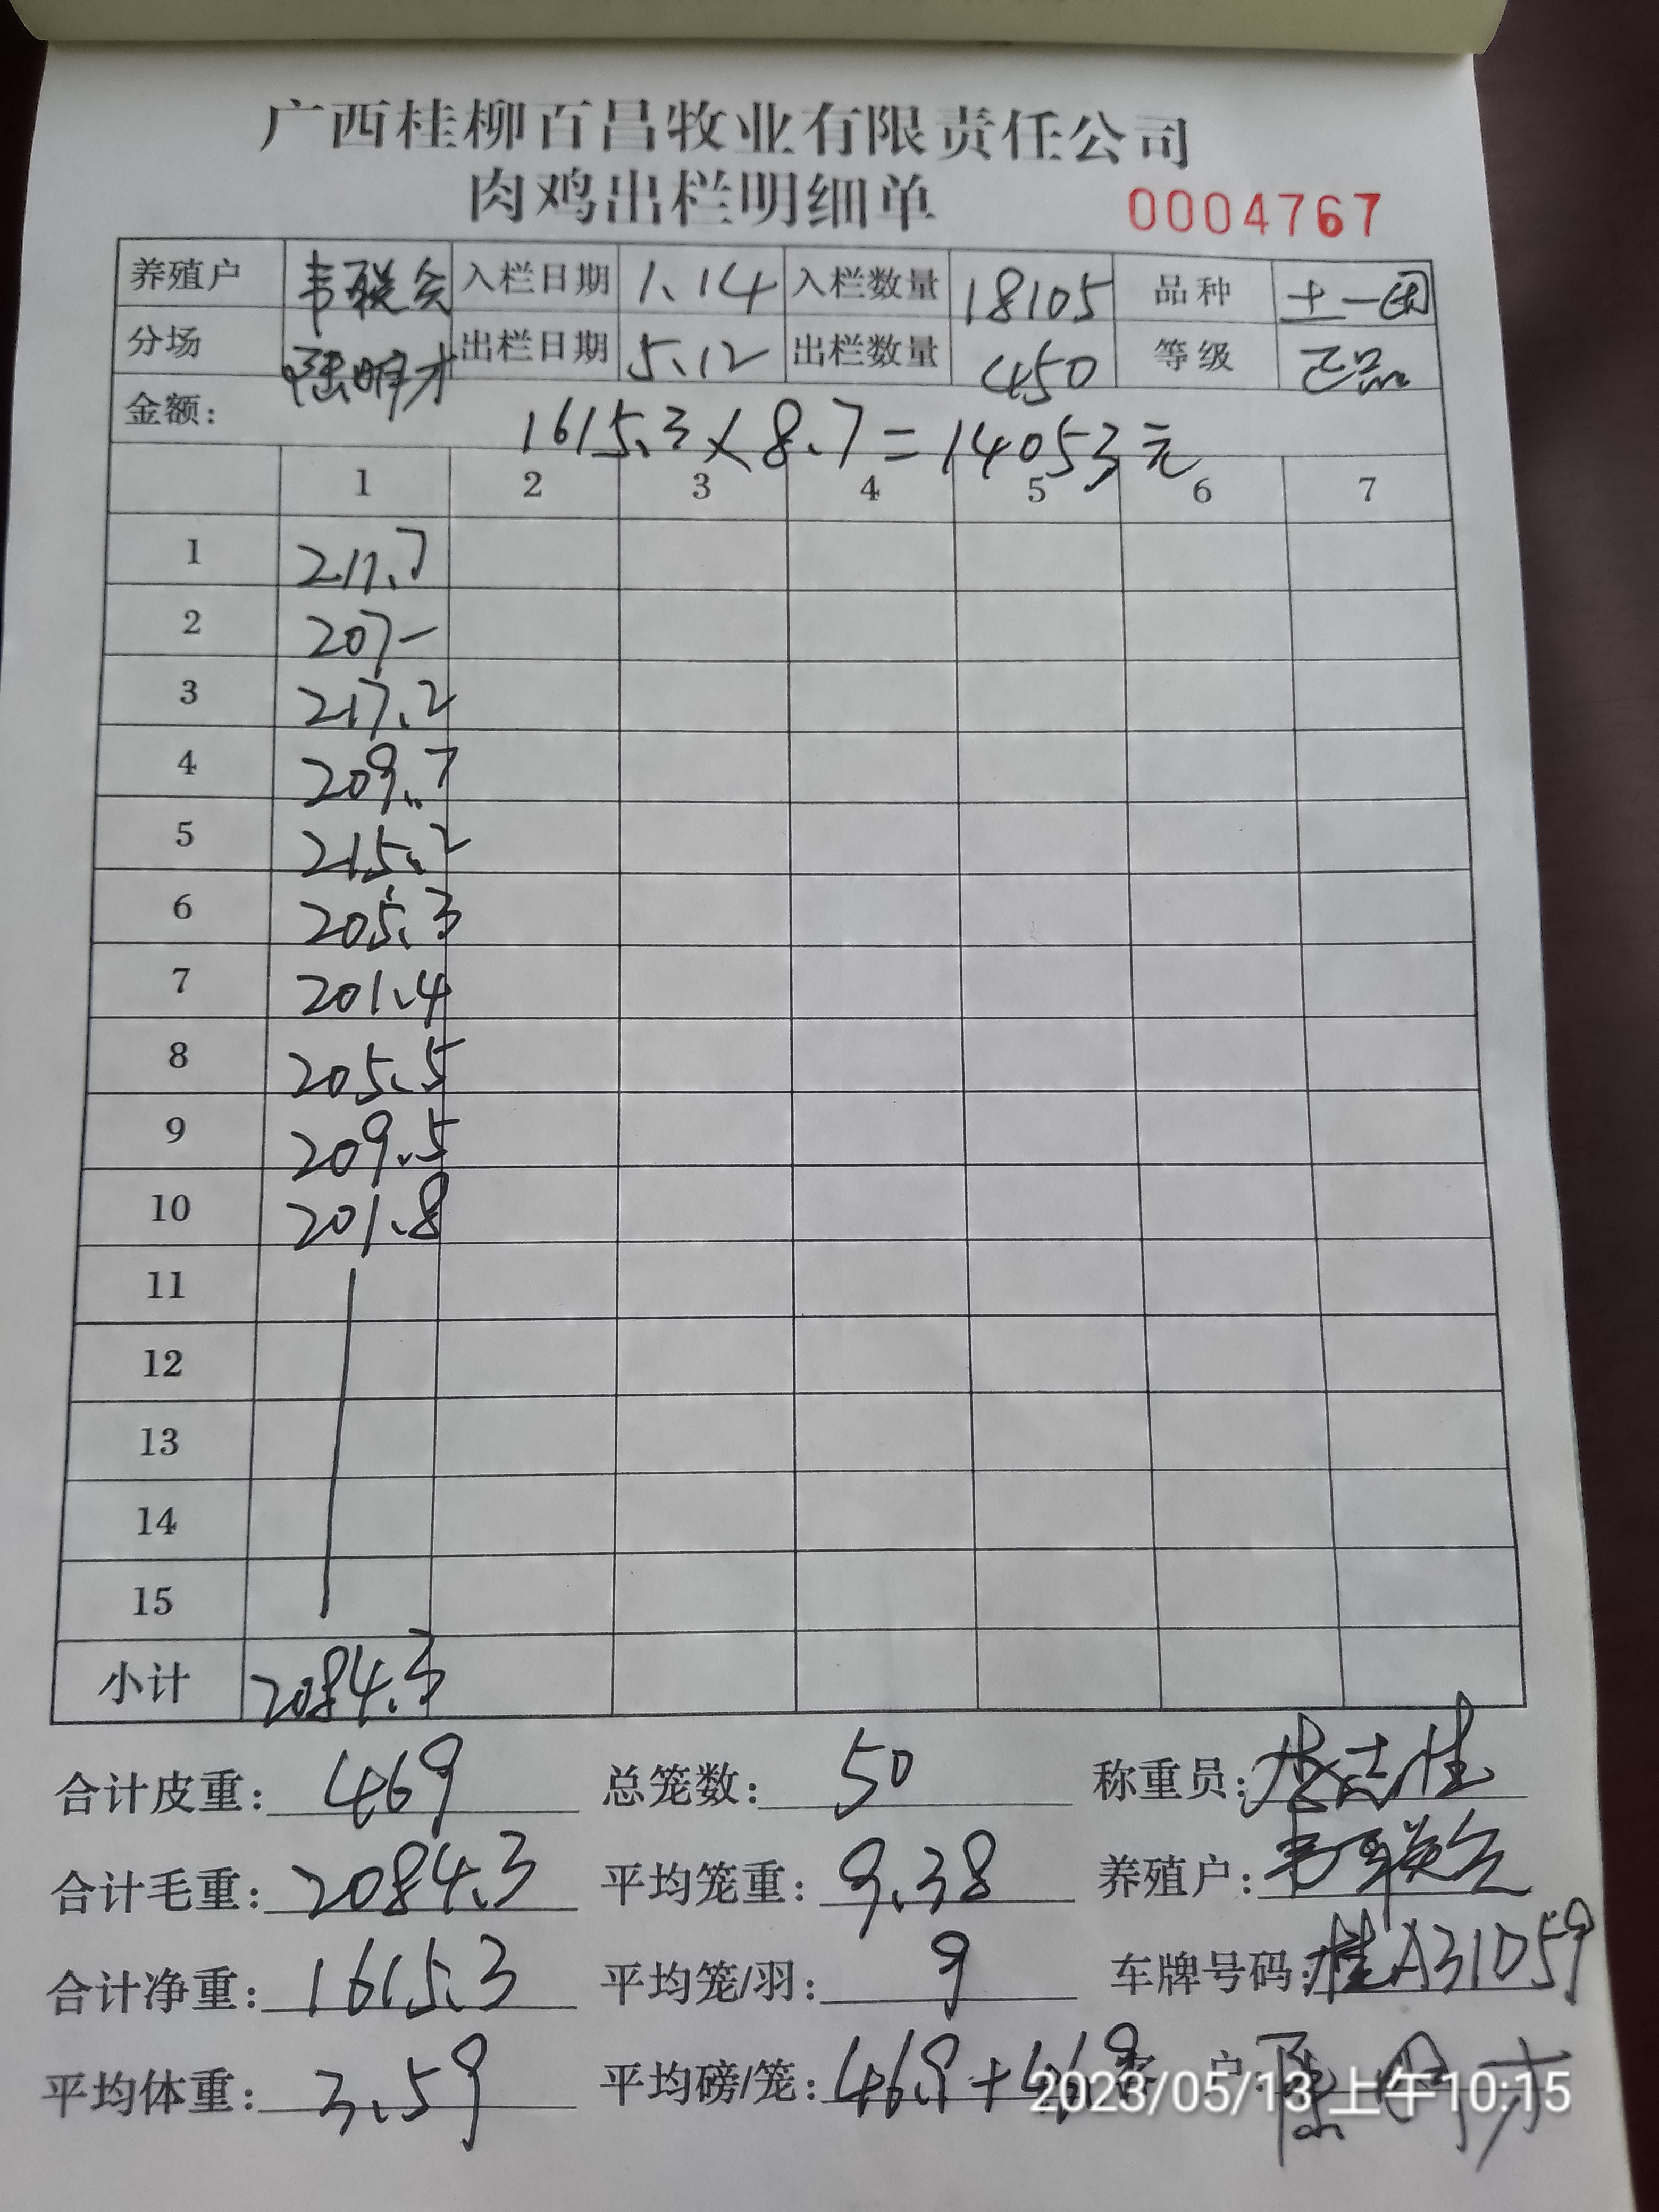 广西桂柳百昌牧业有限责任公司
肉鸡出栏明细单 0004767
养殖户 韦联会 入栏日期 1.14 入栏数量 18105 品种 土一
分场 出栏日期 5.12 出栏数量 450 等级 正品
金额: 1615.3×8.7=14053元
1 2 3 4 5 6 7
1 211.7
2 207-
3 217.2
4 209.7
5 215.2
6 205.3
7 201.4
8 205.5
9 209.5
10 201.8
11
12
13
14
15
小计 2084.3
合计皮重: 469 总笼数: 50 称重员:
合计毛重: 2084.3 平均笼重: 9.38 养殖户: 韦联会
合计净重: 1615.3 平均笼/羽: 9 车牌号码: 桂A31059
平均体重: 3.59 平均磅/笼: 46.9+46.9 户:
2023/05/13 上午10:15